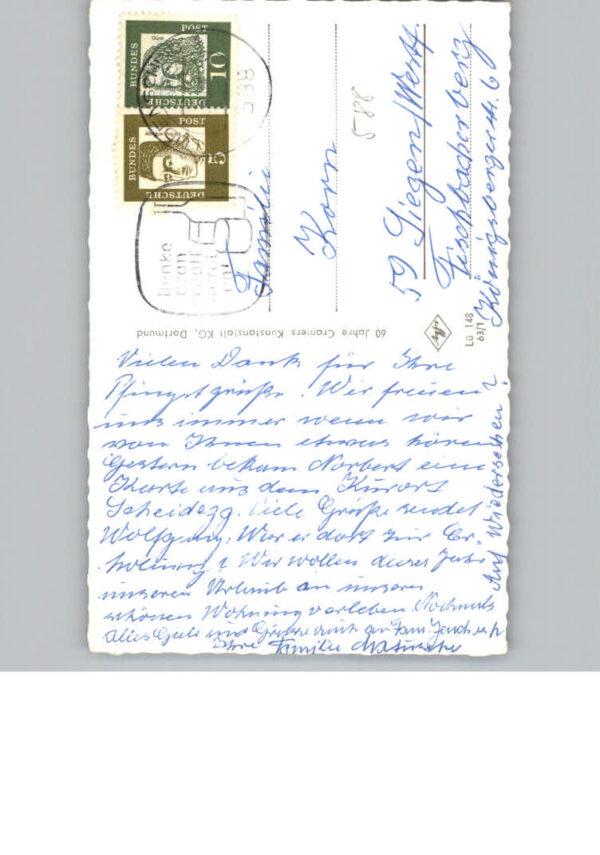 DEUTSCHE
BUNDES
POST
10
DEUTSCHE
BUNDES
POST
5
Denke
dran
Familie
Korn
59 Siegen/Westf.
Fischbacherberg
Königsbergerstr. 6
588
60 Jahre Cramers Kunstanstalt KG, Dortmund
Lü 148
63/1
Vielen Dank für Ihre
Pfingstgrüße. Wir freuen
uns immer wenn wir
von Ihnen etwas hören
Gestern bekam Norbert eine
Karte aus dem Kurort
Scheidegg. Viele Grüße sendet
Wolfgang. War er dort zur Er-
holung? Wir wollen dieses Jahr
unseren Urlaub in unserer
schönen Wohnung verleben. Nochmals
alles Gute und Grüsse auch an Fam.
Ihre Familie
Auf Wiedersehen?